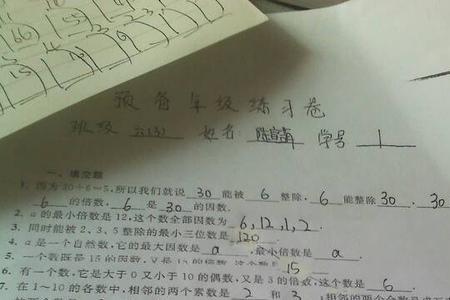 15 13 14
预备年级练习卷
班级 六(3) 姓名: 学号 1
一、填空题
1. 因为30÷6=5,所以我们就说 30 能被 6 整除, 6 能整除 30 . 30
6 的倍数, 6 是 30 的因数.
2. a的最小倍数是12,这个数全部因数为 6,12,1,2.
3. 同时能被2、3、5整除的最小三位数是 120
4. a是一个自然数,它的最大因数是 a ,最小倍数是 a .
5. 一个数既是15的因数,又是15的倍数,这个数是 15
6. 有一个数,它是大于0又小于10的偶数,又是3的倍数,这个数是 6 .
7. 在1~10的各数中,相邻的两个素数是 2 和 3